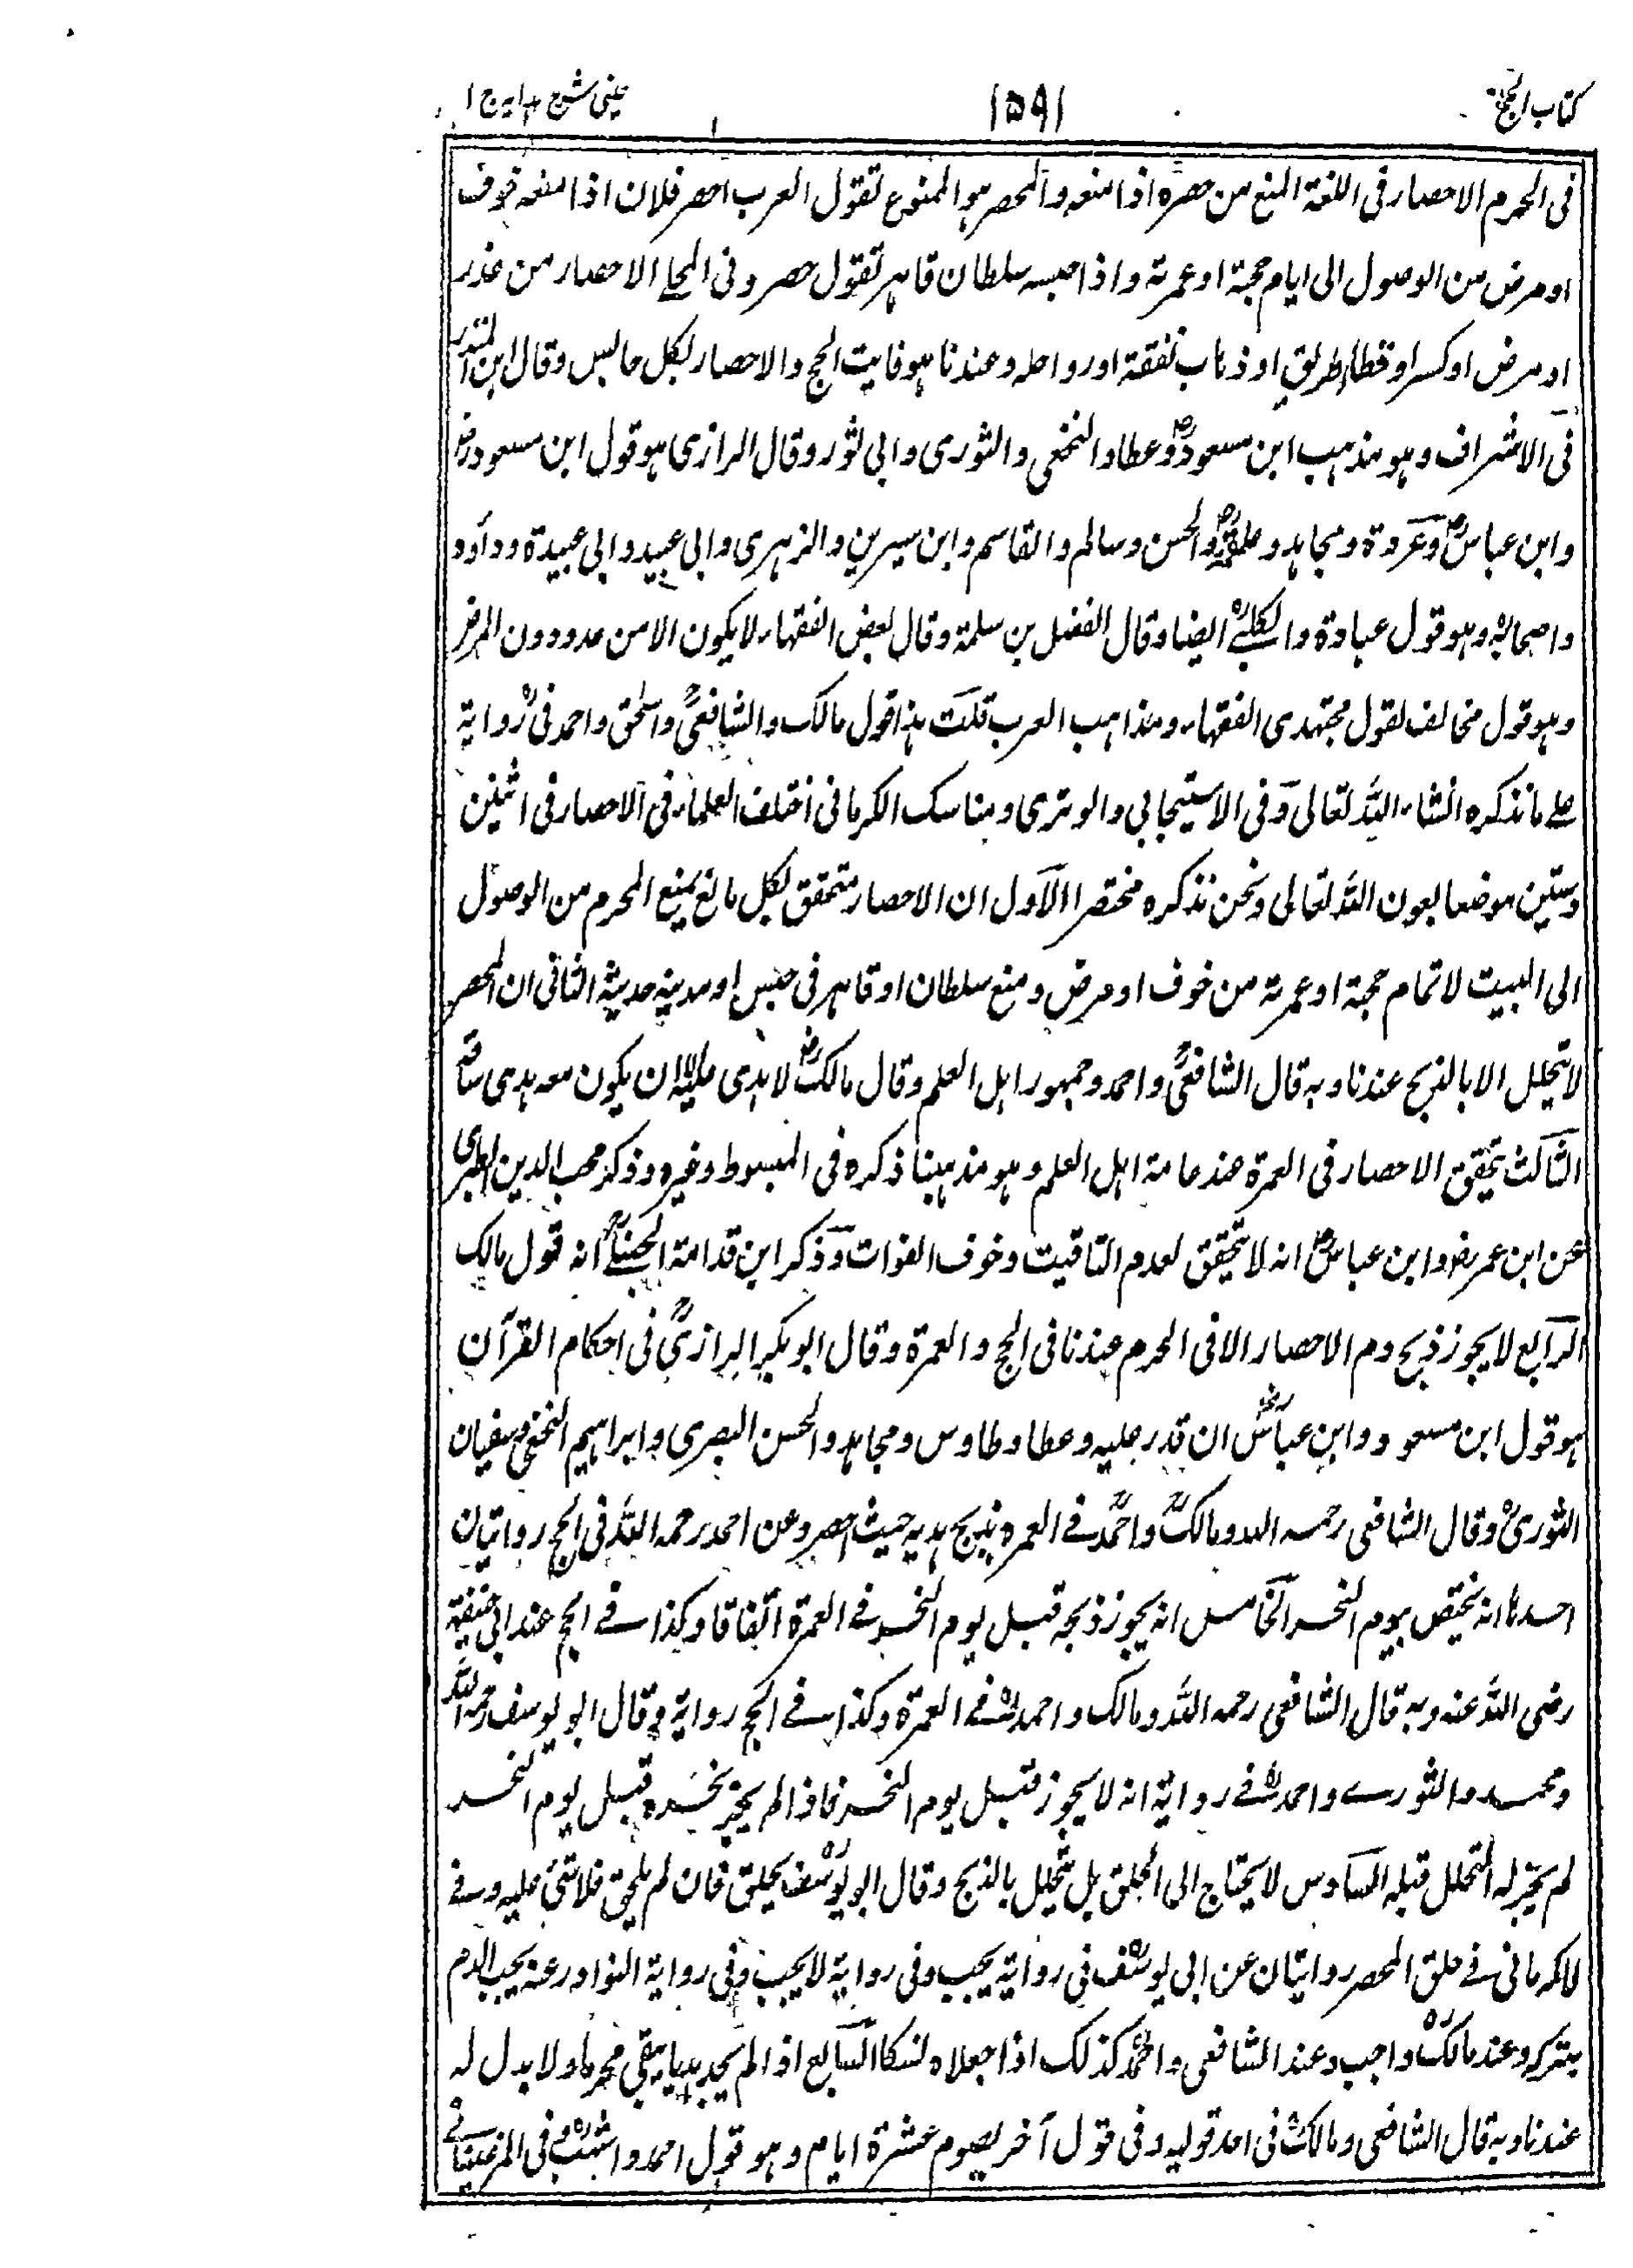 كتاب الحج
١٥٩١
عينى شرح هدايه ج ١
فى المحرم الاحصار فى اللغة المنع من حصره اذا منعه والمحصر هو الممنوع تقول العرب احصر فلان اذا منعه خوف
او مرض من الوصول الى ايام حجة او عمرته واذا حبسه سلطان قاهر تقول حصر وفى المحلى الاحصار من عذر
او مرض او كسر او قطاع طريق او ذهاب نفقة او رواحله وعندنا هو فايت الحج والاحصار بكل حابس وقال ابن المنذر
فى الاشراف وهو مذهب ابن مسعودؓ وعطا والنخعى والثورى وابى ثور وقال الرازى هو قول ابن مسعود رض
وابن عباسؓ وعروة ومجاهد وعلقمةؓ والحسن وسالم والقاسم وابن سيرين والزهرى وابى عبيد وابى عبيدة وداؤد
واصحابه وهو قول عبادة والكلبىؒ ايضا وقال الفضل بن سلمة وقال بعض الفقهاء لا يكون الا من عدو دون المرض
وهو قول مخالف لقول مجتهدى الفقهاء ومذاهب العرب قلت هذا قول مالك والشافعىؒ واسحٰق واحمد فى رواية
على ما نذكره انشاء اللہ تعالى وفى الاسبيجابى والوترى ومناسك الكرمانى اختلف العلماء فى الاحصار فى اثنين
وستين موضعا بعون اللہ تعالى ونحن نذكره مختصرا الاول ان الاحصار متحقق بكل مانع يمنع المحرم من الوصول
الى البيت لاتمام حجة او عمرته من خوف او مرض ومنع سلطان او قاهر فى حبس او مدينه مدينة الثانى ان المحصر
لا يتحلل الا بالذبح عندنا وبه قال الشافعىؒ واحمد وجمهور اهل العلم وقال مالكؒ لا هدى عليه الا ان يكون معه هدى ساقه
الثالث يتحقق الاحصار فى العمرة عند عامة اهل العلم وهو مذهبنا ذكره فى المبسوط وغيره وذكر محب الدين الطبرى
عن ابن عمر رض وابن عباسؓ انه لا يتحقق لعدم التاقيت وخوف الفوات وذكر ابن قدامة الحنبلىؒ انه قول مالك
الرابع لا يجوز ذبح دم الاحصار الا فى الحرم عندنا فى الحج والعمرة وقال ابو بكر الرازىؒ فى احكام القرآن
هو قول ابن مسعود وابن عباسؓ ان قدر عليه وعطا وطاوس ومجاهد والحسن البصرى وابراهيم النخعى وسفيان
الثورىؒ وقال الشافعى رحمه الله ومالكؒ واحمدؒ فى العمره يذبح هديه حيث احصر وعن احمد رحمه اللہ فى الحج روايتان
احداهما انه يختص بيوم النحر الخامس انه يجوز ذبحه قبل يوم النحر فى العمرة اتفاقا وكذا فى الحج عند ابى حنيفة
رضى اللہ عنه وبه قال الشافعى رحمه اللہ ومالك واحمدؒ فى العمرة وكذا فى الحج رواية وقال ابو يوسف رحمه اللہ
ومحمد والثورى واحمدؒ فى رواية انه لا يجوز قبل يوم النحر فاذا لم يجز نحره قبل يوم النحر
لم يجز له التحلل قبله السادس لا يحتاج الى الحلق بل يتحلل بالذبح وقال ابو يوسفؒ يحلق فان لم يحلق فلا شئ عليه وفى
الكرمانى فى حلق المحصر روايتان عن ابى يوسفؒ فى رواية يجب وفى رواية لا يجب وفى رواية النوادر عنه يجب الدم
بتركه وعند مالكؒ واجب وعند الشافعى واحمدؒ كذلك اذا جعلاه نسكا السابع اذا لم يجد هديا يبقى محرما ولا بدل له
عندنا وبه قال الشافعى ومالكؒ فى احد قوليه وفى قول آخر يصوم عشرة ايام وهو قول احمد واشهبؒ فى